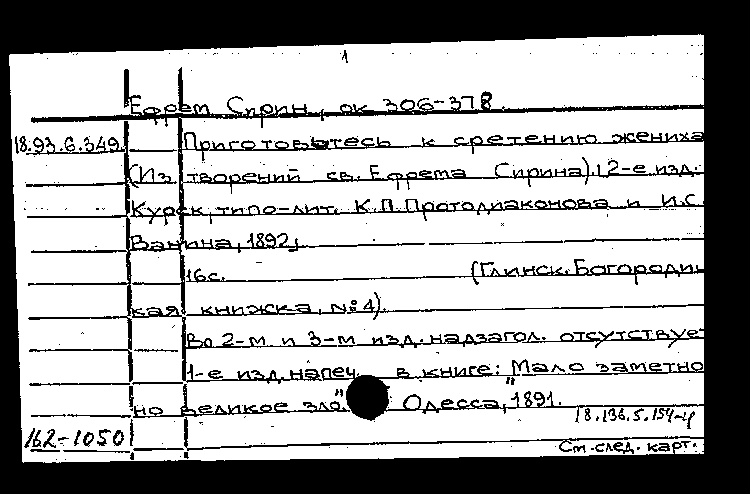 1
Ефрем Сирин, ок 306-378
18.93.6.349. Приготовьтесь к сретению жениха
(Из творений св. Ефрема Сирина). 2-е изд.
Курск, типо-лит. К.П. Протодиаконова и И.С.
Ванина, 1892,
16с. (Глинск. Богородиц
кая книжка, №4).
Во 2-м и 3-м изд. надзагол. отсутствует
1-е изд. напеч. в книге: "Мало заметно
но великое зло." Одесса, 1891.
18.136.5.154-4
162-1050
См. след. карт.